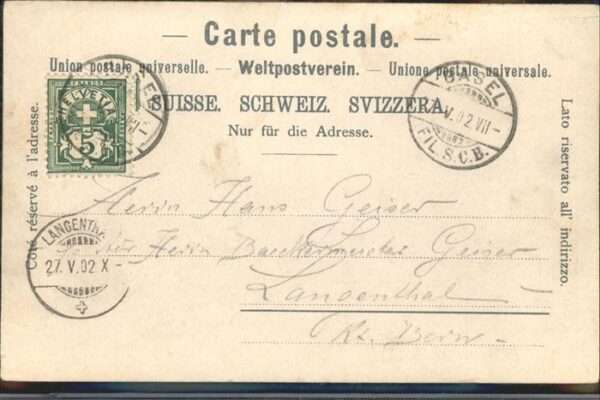 — Carte postale. —
Union postale universelle. — Weltpostverein. — Unione postale universale.
SUISSE. SCHWEIZ. SVIZZERA.
Nur für die Adresse.
Côté réservé à l'adresse.
Lato riservato all' indirizzo.
HELVETIA
5
BASEL
V.02.VII-
FIL. S.C.B.
LANGENTH
27.V.02.X-
Herrn Hans Geiser
Herrn Baeckermeister Geiser
Langenthal
Kt. Bern